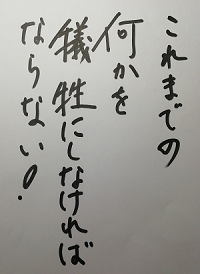 これまでの
何かを
犠牲にしなければ
ならない!